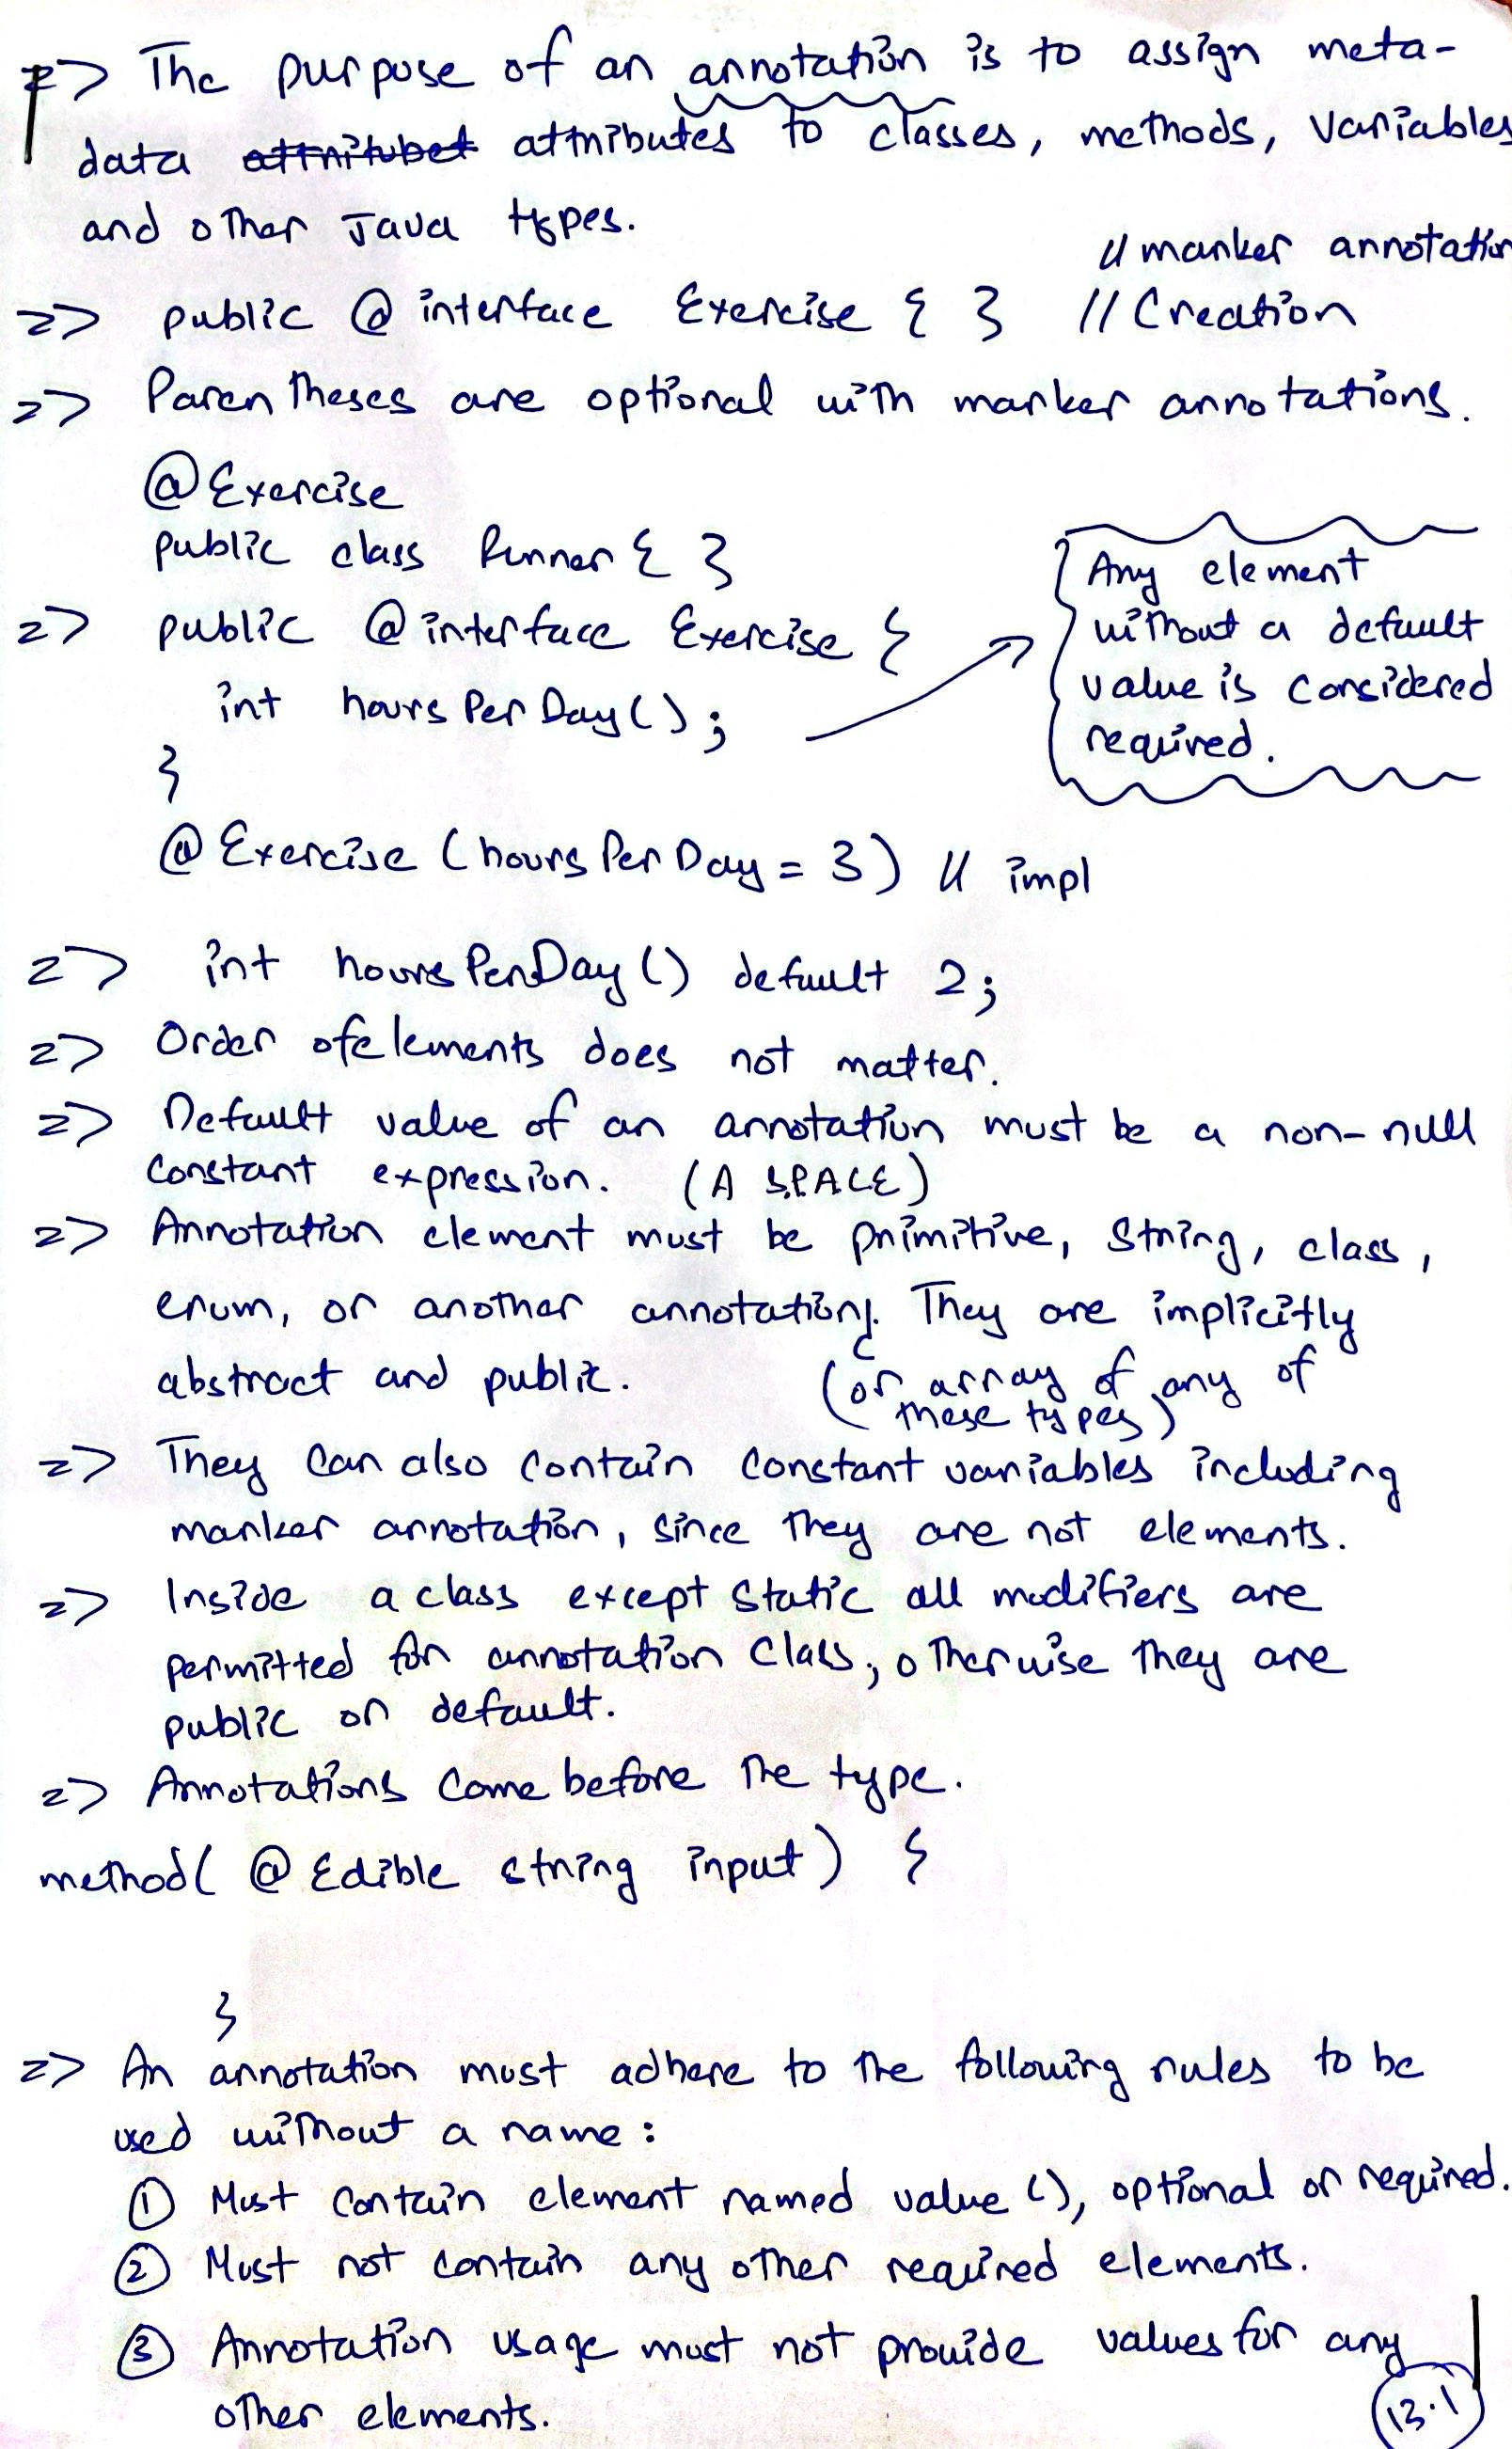 => The purpose of an annotation is to assign meta-
data attributes to classes, methods, variables
and other Java types.
// marker annotation
=> public @interface Exercise { } // Creation
=> Parentheses are optional with marker annotations.
@Exercise
public class Runner { }
=> public @interface Exercise {
int hoursPerDay();
}
Any element
without a default
value is considered
required.
@Exercise (hoursPerDay = 3) // impl
=> int hoursPerDay() default 2;
=> Order of elements does not matter.
=> Default value of an annotation must be a non-null
constant expression. (A SPACE)
=> Annotation element must be primitive, String, class,
enum, or another annotation. They are implicitly
abstract and public. (or array of any of
these types)
=> They can also contain constant variables including
marker annotation, since they are not elements.
=> Inside a class except static all modifiers are
permitted for annotation class, otherwise they are
public or default.
=> Annotations come before the type.
method( @Edible string input) {
}
=> An annotation must adhere to the following rules to be
used without a name:
① Must contain element named value (), optional or required.
② Must not contain any other required elements.
③ Annotation usage must not provide values for any
other elements.
13.1